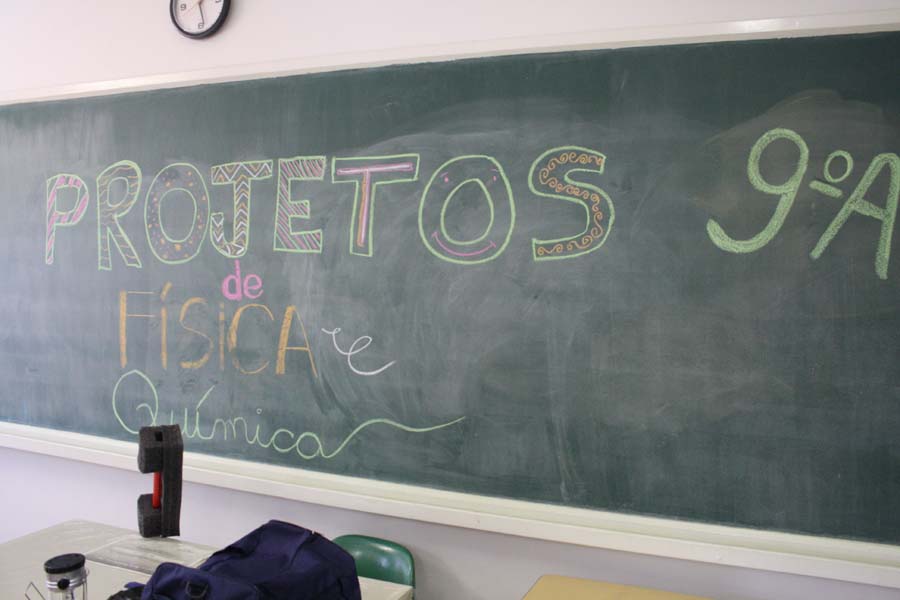 PROJETOS 9ºA
de
FÍSICA e
Química